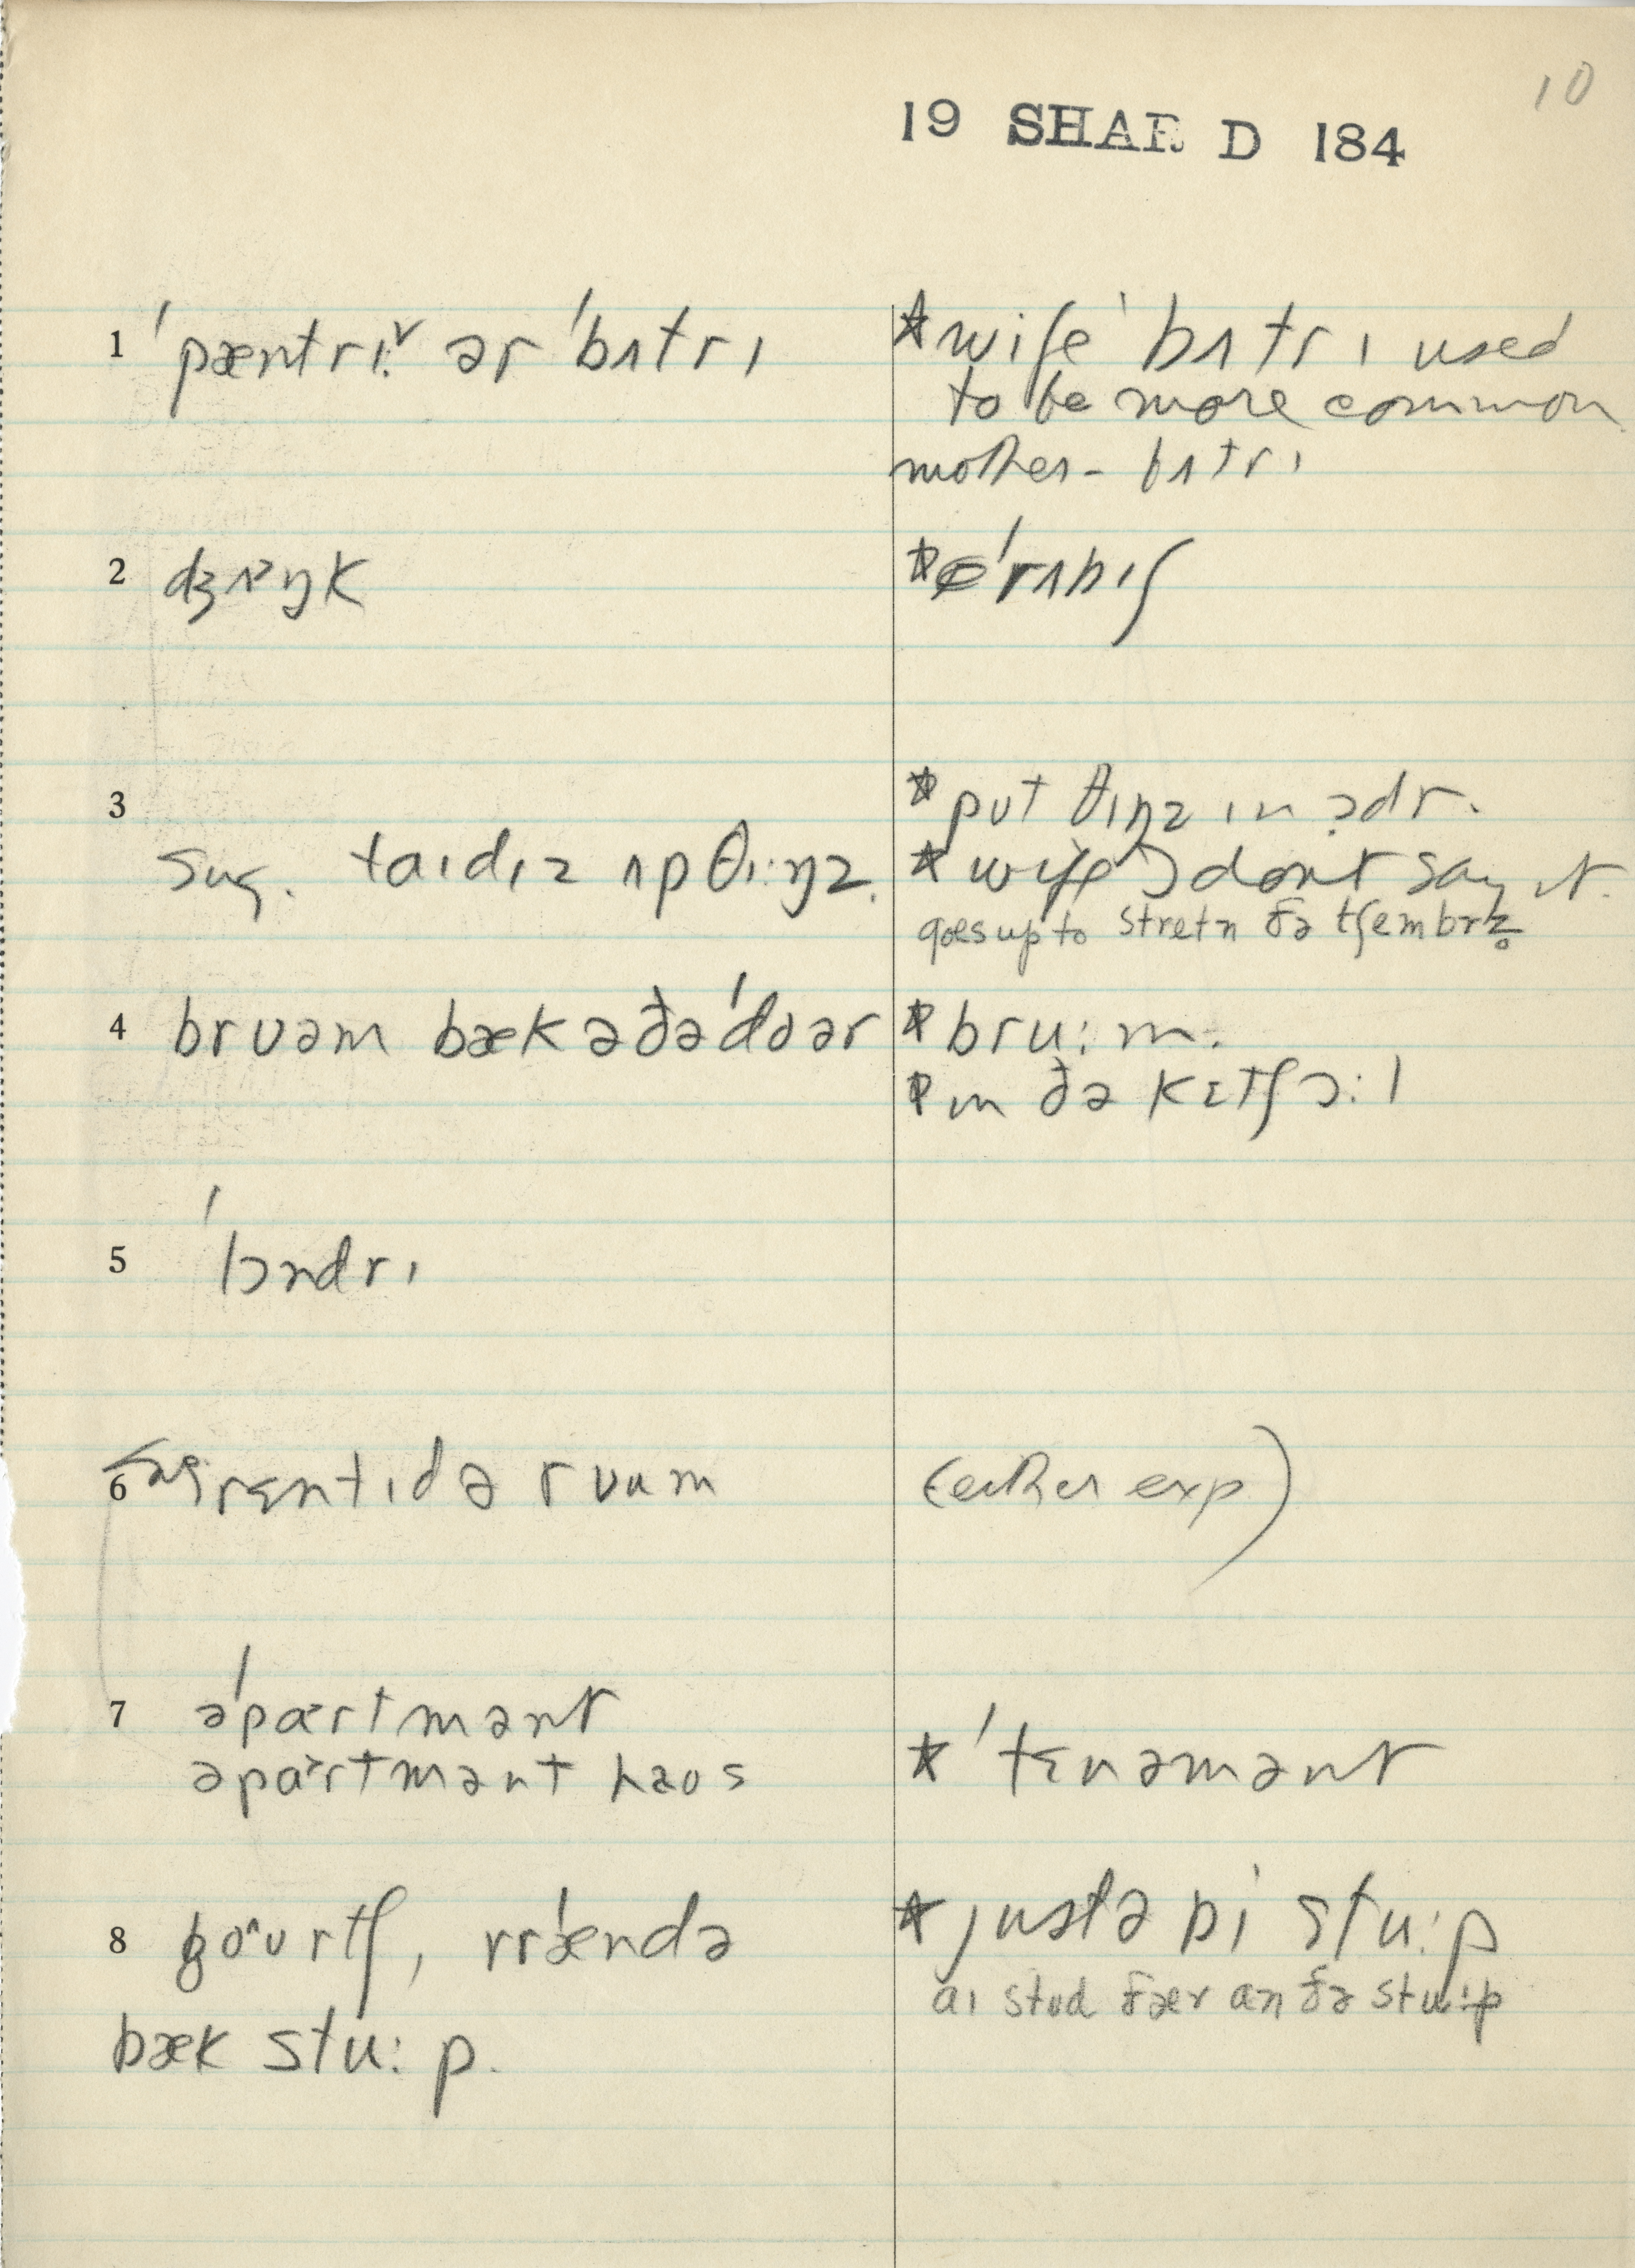 10
19 SHAR D 184
1 ˈpæntrɪ˅ ər ˈbʌtrɪ
★ wife ˈbʌtrɪ used
to be more common
mother - bʌtrɪ
2 dʒʌ˃ŋk
★ ˈrʌbɪʃ
3
★ put θɪŋz ɪn ədr.
sug. taɪdɪz ʌp θɪ:ŋz.
★ wife don't say it.
goes up to stretn ðə tʃembrz̥
4 brʊəm bæk ə ðə ˈdoər
★ bru:m.
★ in ðə kɪtʃ ɔ:l
5 ˈlɔndrɪ
6 sug. rɛntɪd ə rʊum
(either exp)
7 əˈpɑrtmənt
əpɑrtmənt haʊs
★ ˈtɛnəmənt
8 po^ʊrtʃ, vrˈændə
★ justə bi stu:p
aɪ stʊd ðær an ðə stu:p
bæk stu:p.